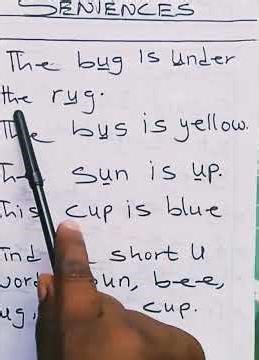 SENTENCES
The bug is under
the rug.
The bus is yellow.
The sun is up.
This cup is blue
short u
bee,
cup.